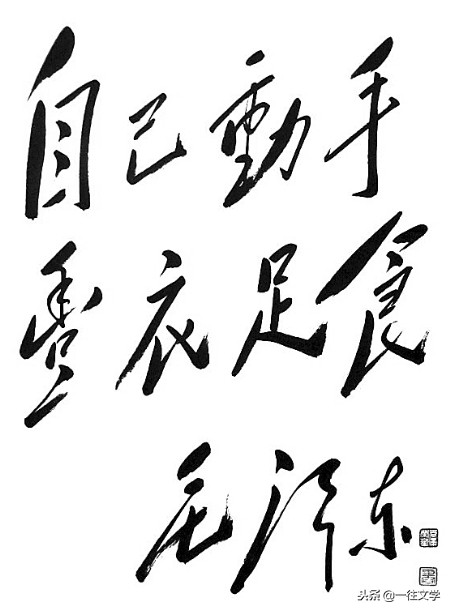 自己動手
豐衣足食
毛泽东
头条@一往文学